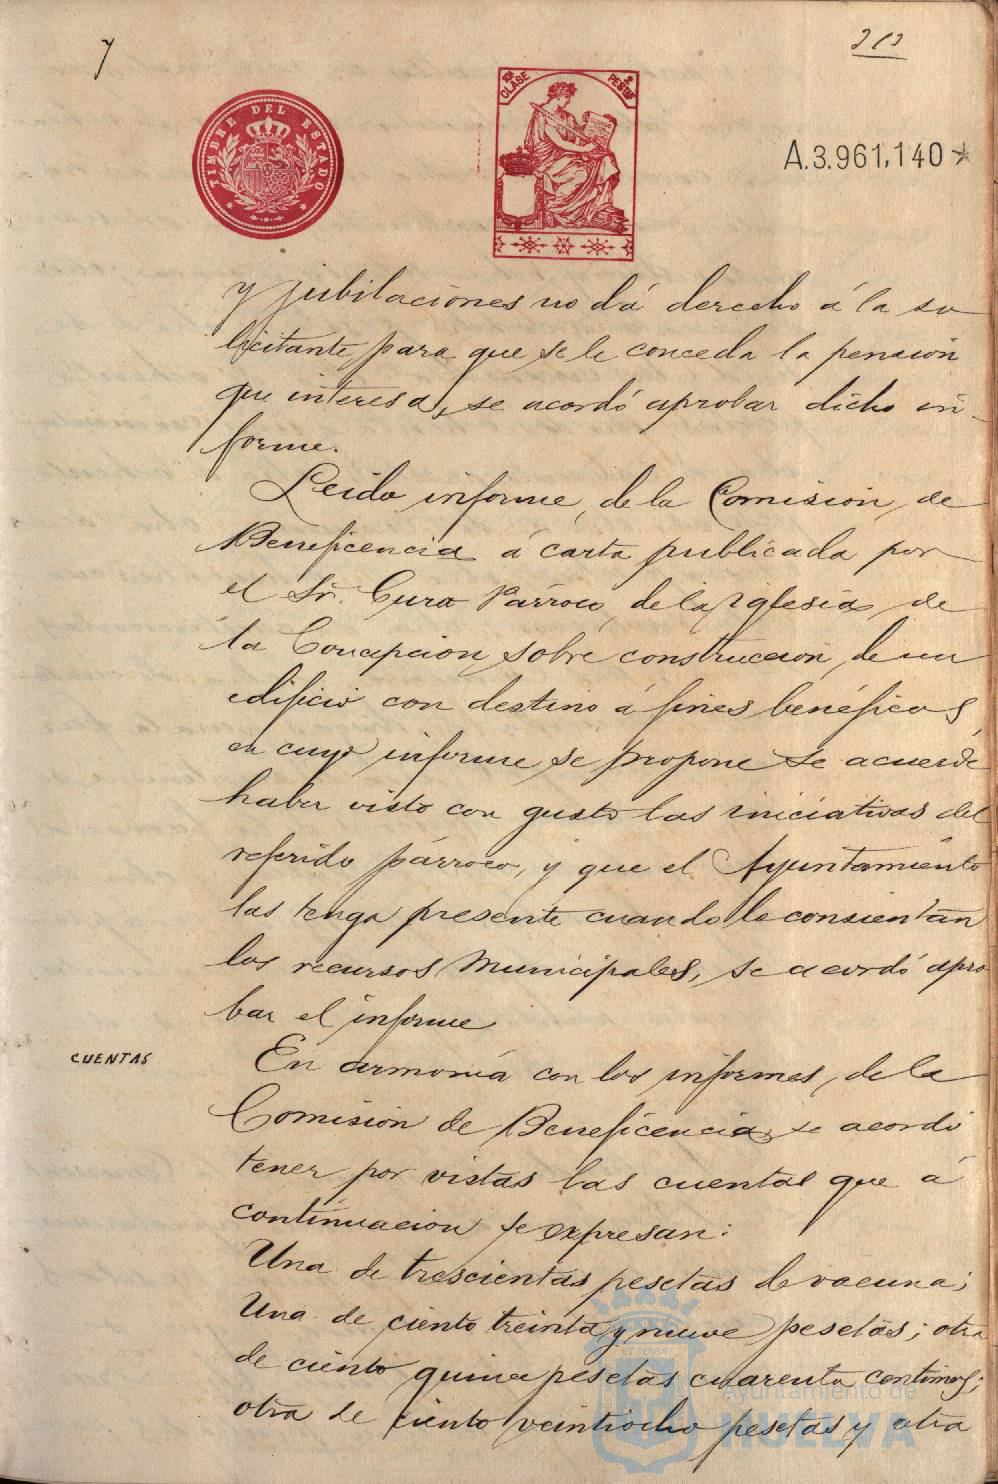 y
TIMBRE DEL ESTADO
10ª CLASE
2 PESTAS
A.3.961,140
y jubilaciones no dá derecho á la so
licitante para que se le conceda la pensión
que interesa, se acordó aprobar dicho in-
forme.
Leido informe, de la Comisión, de
Beneficencia á carta publicada por
el Sr. Cura Párroco, de la Iglesia, de
la Concepción, sobre construcción, de un
edificio con destino á fines benéficos,
en cuyo informe se propone se acuerde
haber visto con gusto las iniciativas del
referido párroco, y que el Ayuntamiento
las tenga presente cuando lo consientan
los recursos Municipales, se acordó apro
bar el informe
CUENTAS
En armonía con los informes, de la
Comisión de Beneficencia, se acordó
tener por vistas las cuentas que á
continuación se expresan:
Una de trescientas pesetas de vacuna;
Una de ciento treinta y nueve pesetas; otra
de ciento quince pesetas cuarenta centimos;
otra de ciento veintiocho pesetas y otra
Ayuntamiento de
HUELVA